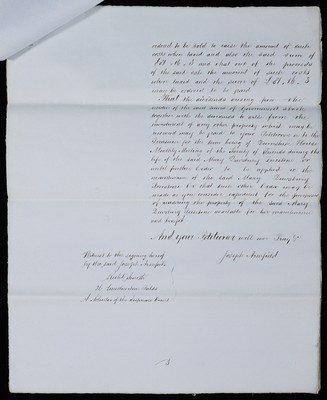 ordered to be sold to raise the amount of such
costs when taxed and also the said sum of
and that out of the proceeds
of the said sale the amount of such costs
when taxed and the sum of
may be ordered to be paid
That the dividends arising from the
residue of the said sums of Government stocks
together with the dividends to arise from the
investment of any other property which may be
received may be paid to your Petitioner or to the
Treasurer for the time being of Devonshire House
Monthly Meeting of the Society of Friends during the
life of the said Mary
until further Order to be applied in the
maintenance of the said Mary
or that such other Order may be
made as your considers expedient for the purpose
of rendering the property of the said Mary
available for her maintenance
and benefit
And your Petitioner will ever Pray &c
Joseph
Witness to the signing hereof
by the said Joseph
Smith
Lincolns Inn Fields
A Solicitor of the Supreme Court